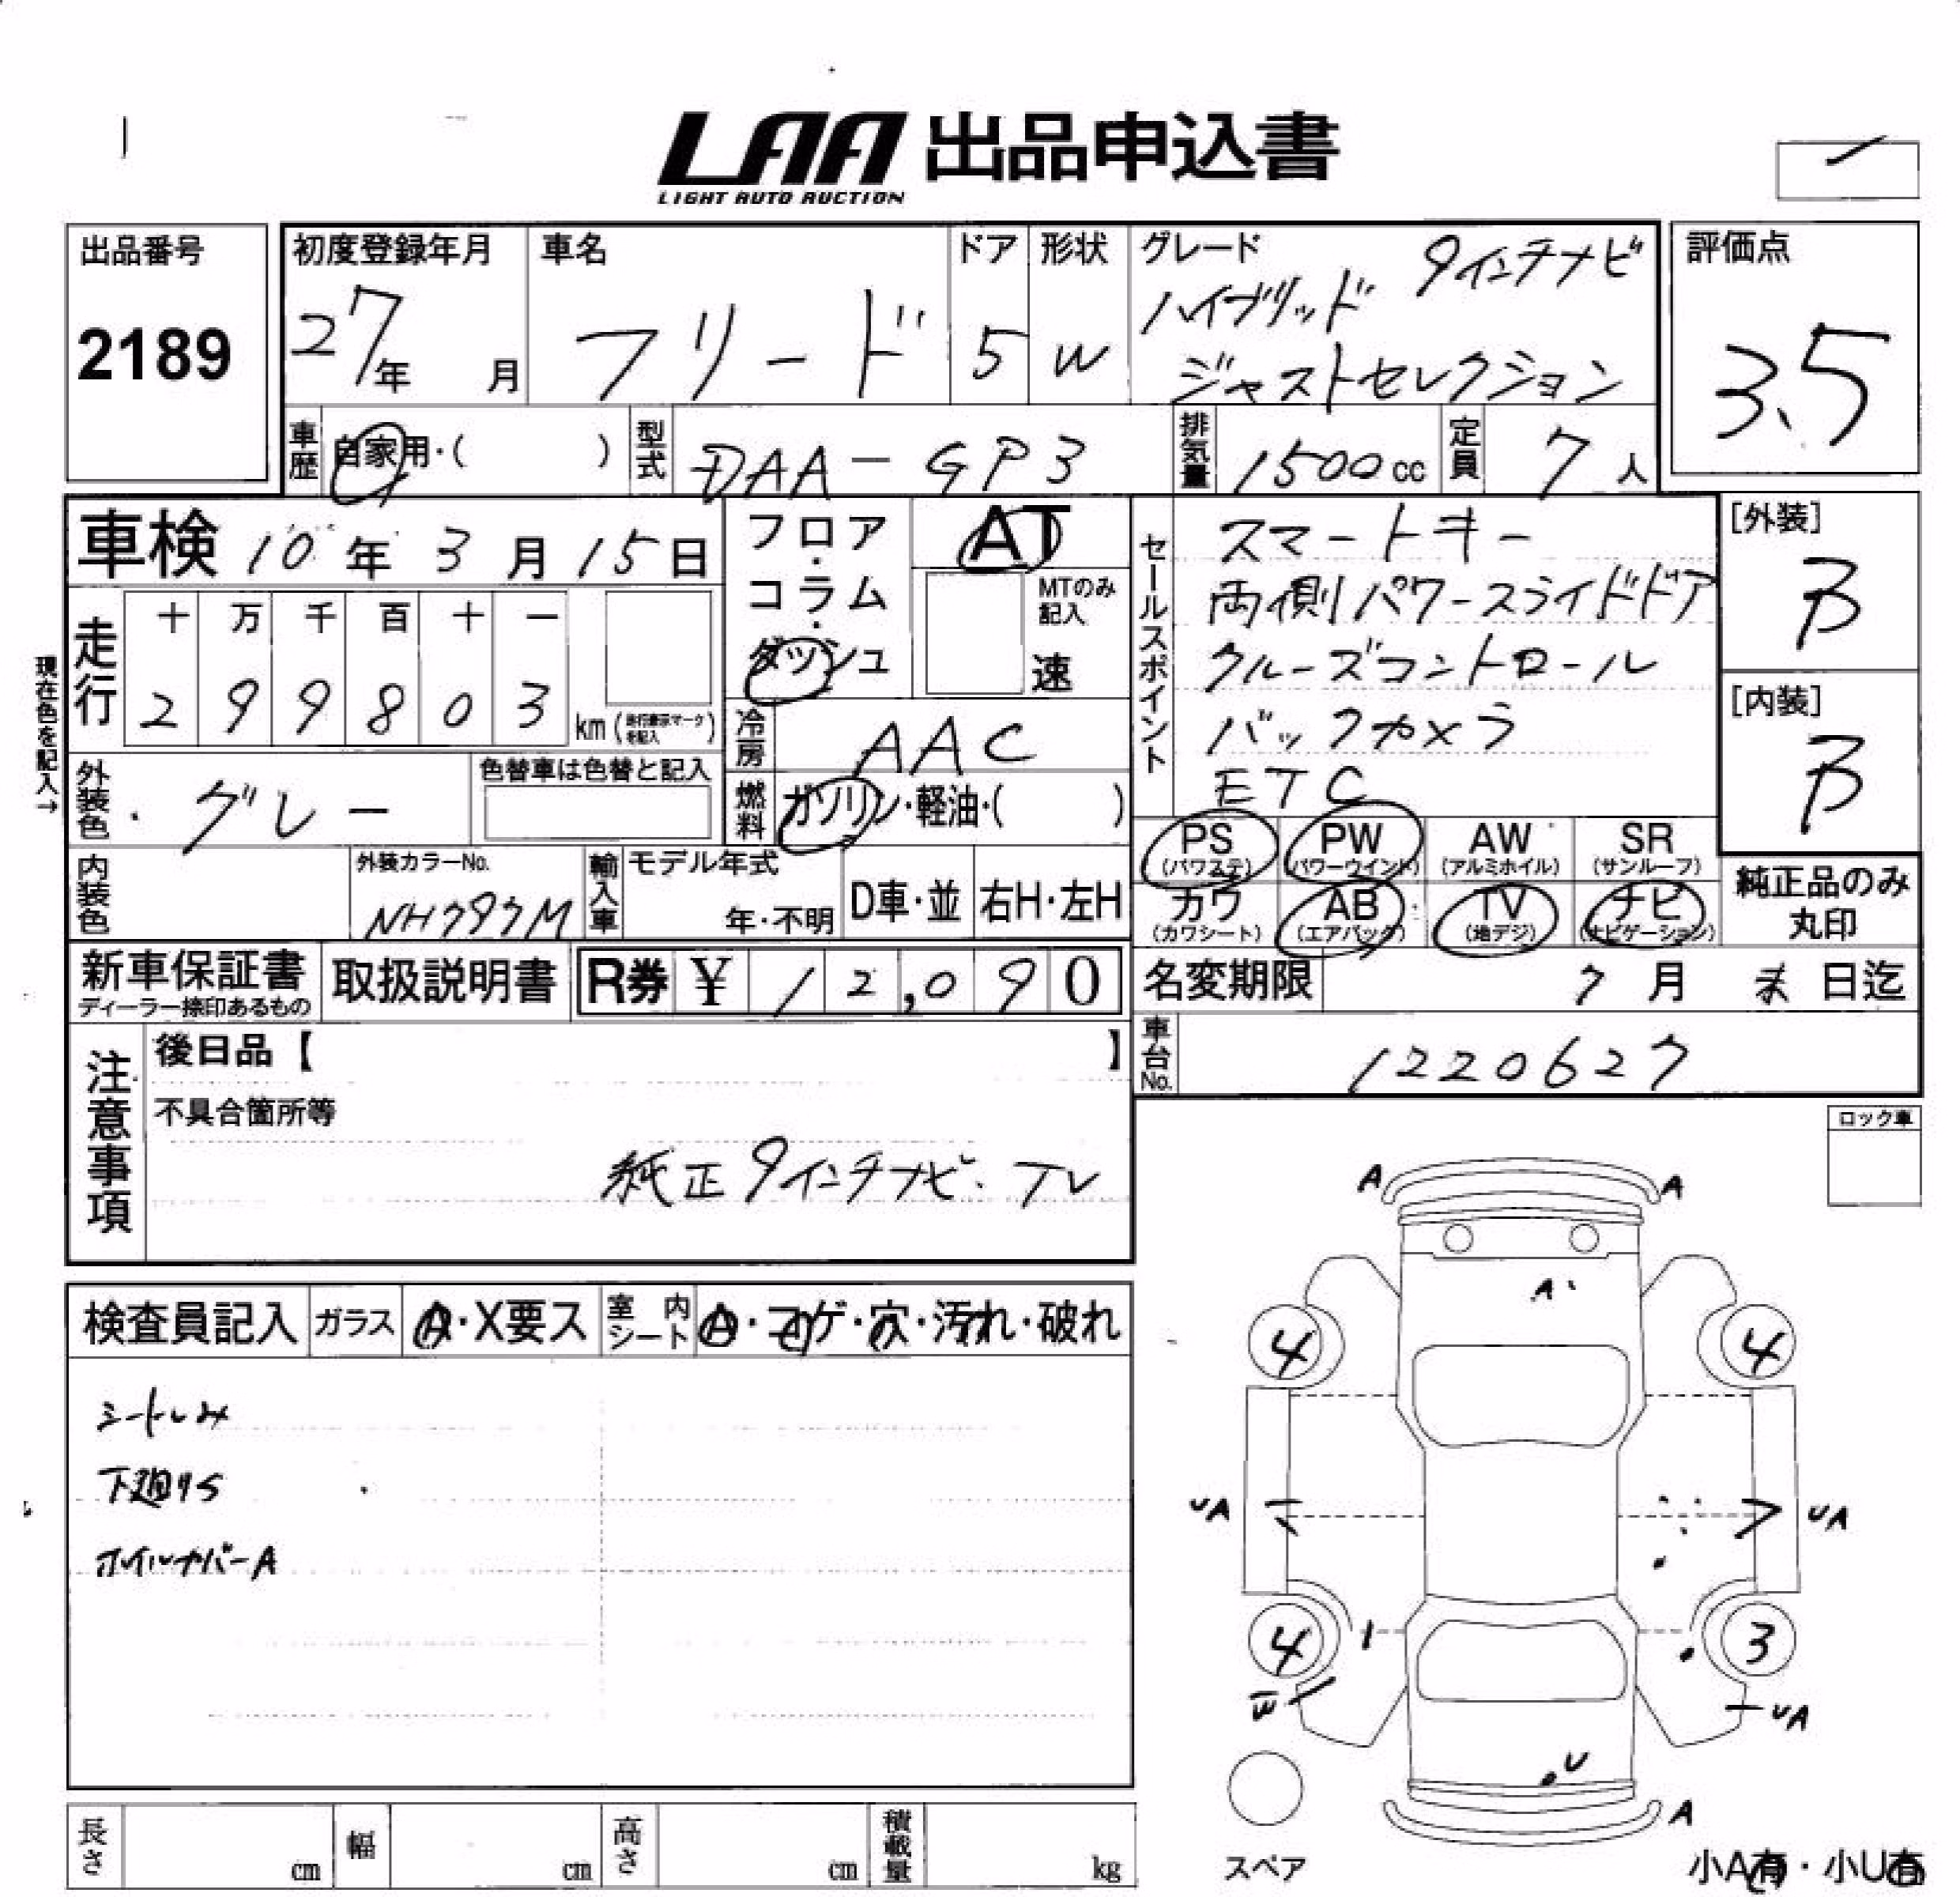 LAA 出品申込書
LIGHT AUTO AUCTION
出品番号
2189
初度登録年月
27年 月
車名
フリード
ドア
5
形状
W
グレード
9インチナビ
ハイブリッド
ジャストセレクション
評価点
3.5
車歴
自家用・( )
型式
DAA-GP3
排気量
1500cc
定員
7人
車検 10年3月15日
フロア・コラム・ダッシュ
AT
MTのみ記入
速
セールスポイント
スマートキー
両側パワースライドドア
クルーズコントロール
バックカメラ
ETC
[外装]
B
[内装]
B
現在色を記入→
走行
十 万 千 百 十 一
2 9 9 8 0 3
km (走行表示マークを記入)
冷房
AAC
外装色
グレー
色替車は色替と記入
燃料
ガソリン・軽油・( )
PS
(パワステ)
PW
(パワーウインド)
AW
(アルミホイル)
SR
(サンルーフ)
カワ
(カワシート)
AB
(エアバック)
TV
(地デジ)
ナビ
(ナビゲーション)
純正品のみ
丸印
内装色
外装カラーNo.
NH797M
輸入車
モデル年式
年・不明
D車・並
右H・左H
新車保証書
ディーラー捺印あるもの
取扱説明書
R券 ¥ 12,090
名変期限
7月 末日迄
車台No.
1220627
注意事項
後日品【 】
不具合箇所等
純正9インチナビ・TV
ロック車
検査員記入
ガラス
A・X要ス
室内シート
A・コゲ・穴・汚れ・破れ
シートしみ
下廻りS
ホイルカバーA
A
A
A
4
4
UA
UA
4
3
W
UA
U
A
スペア
長さ
cm
幅
cm
高さ
cm
積載量
kg
小A有・小U有